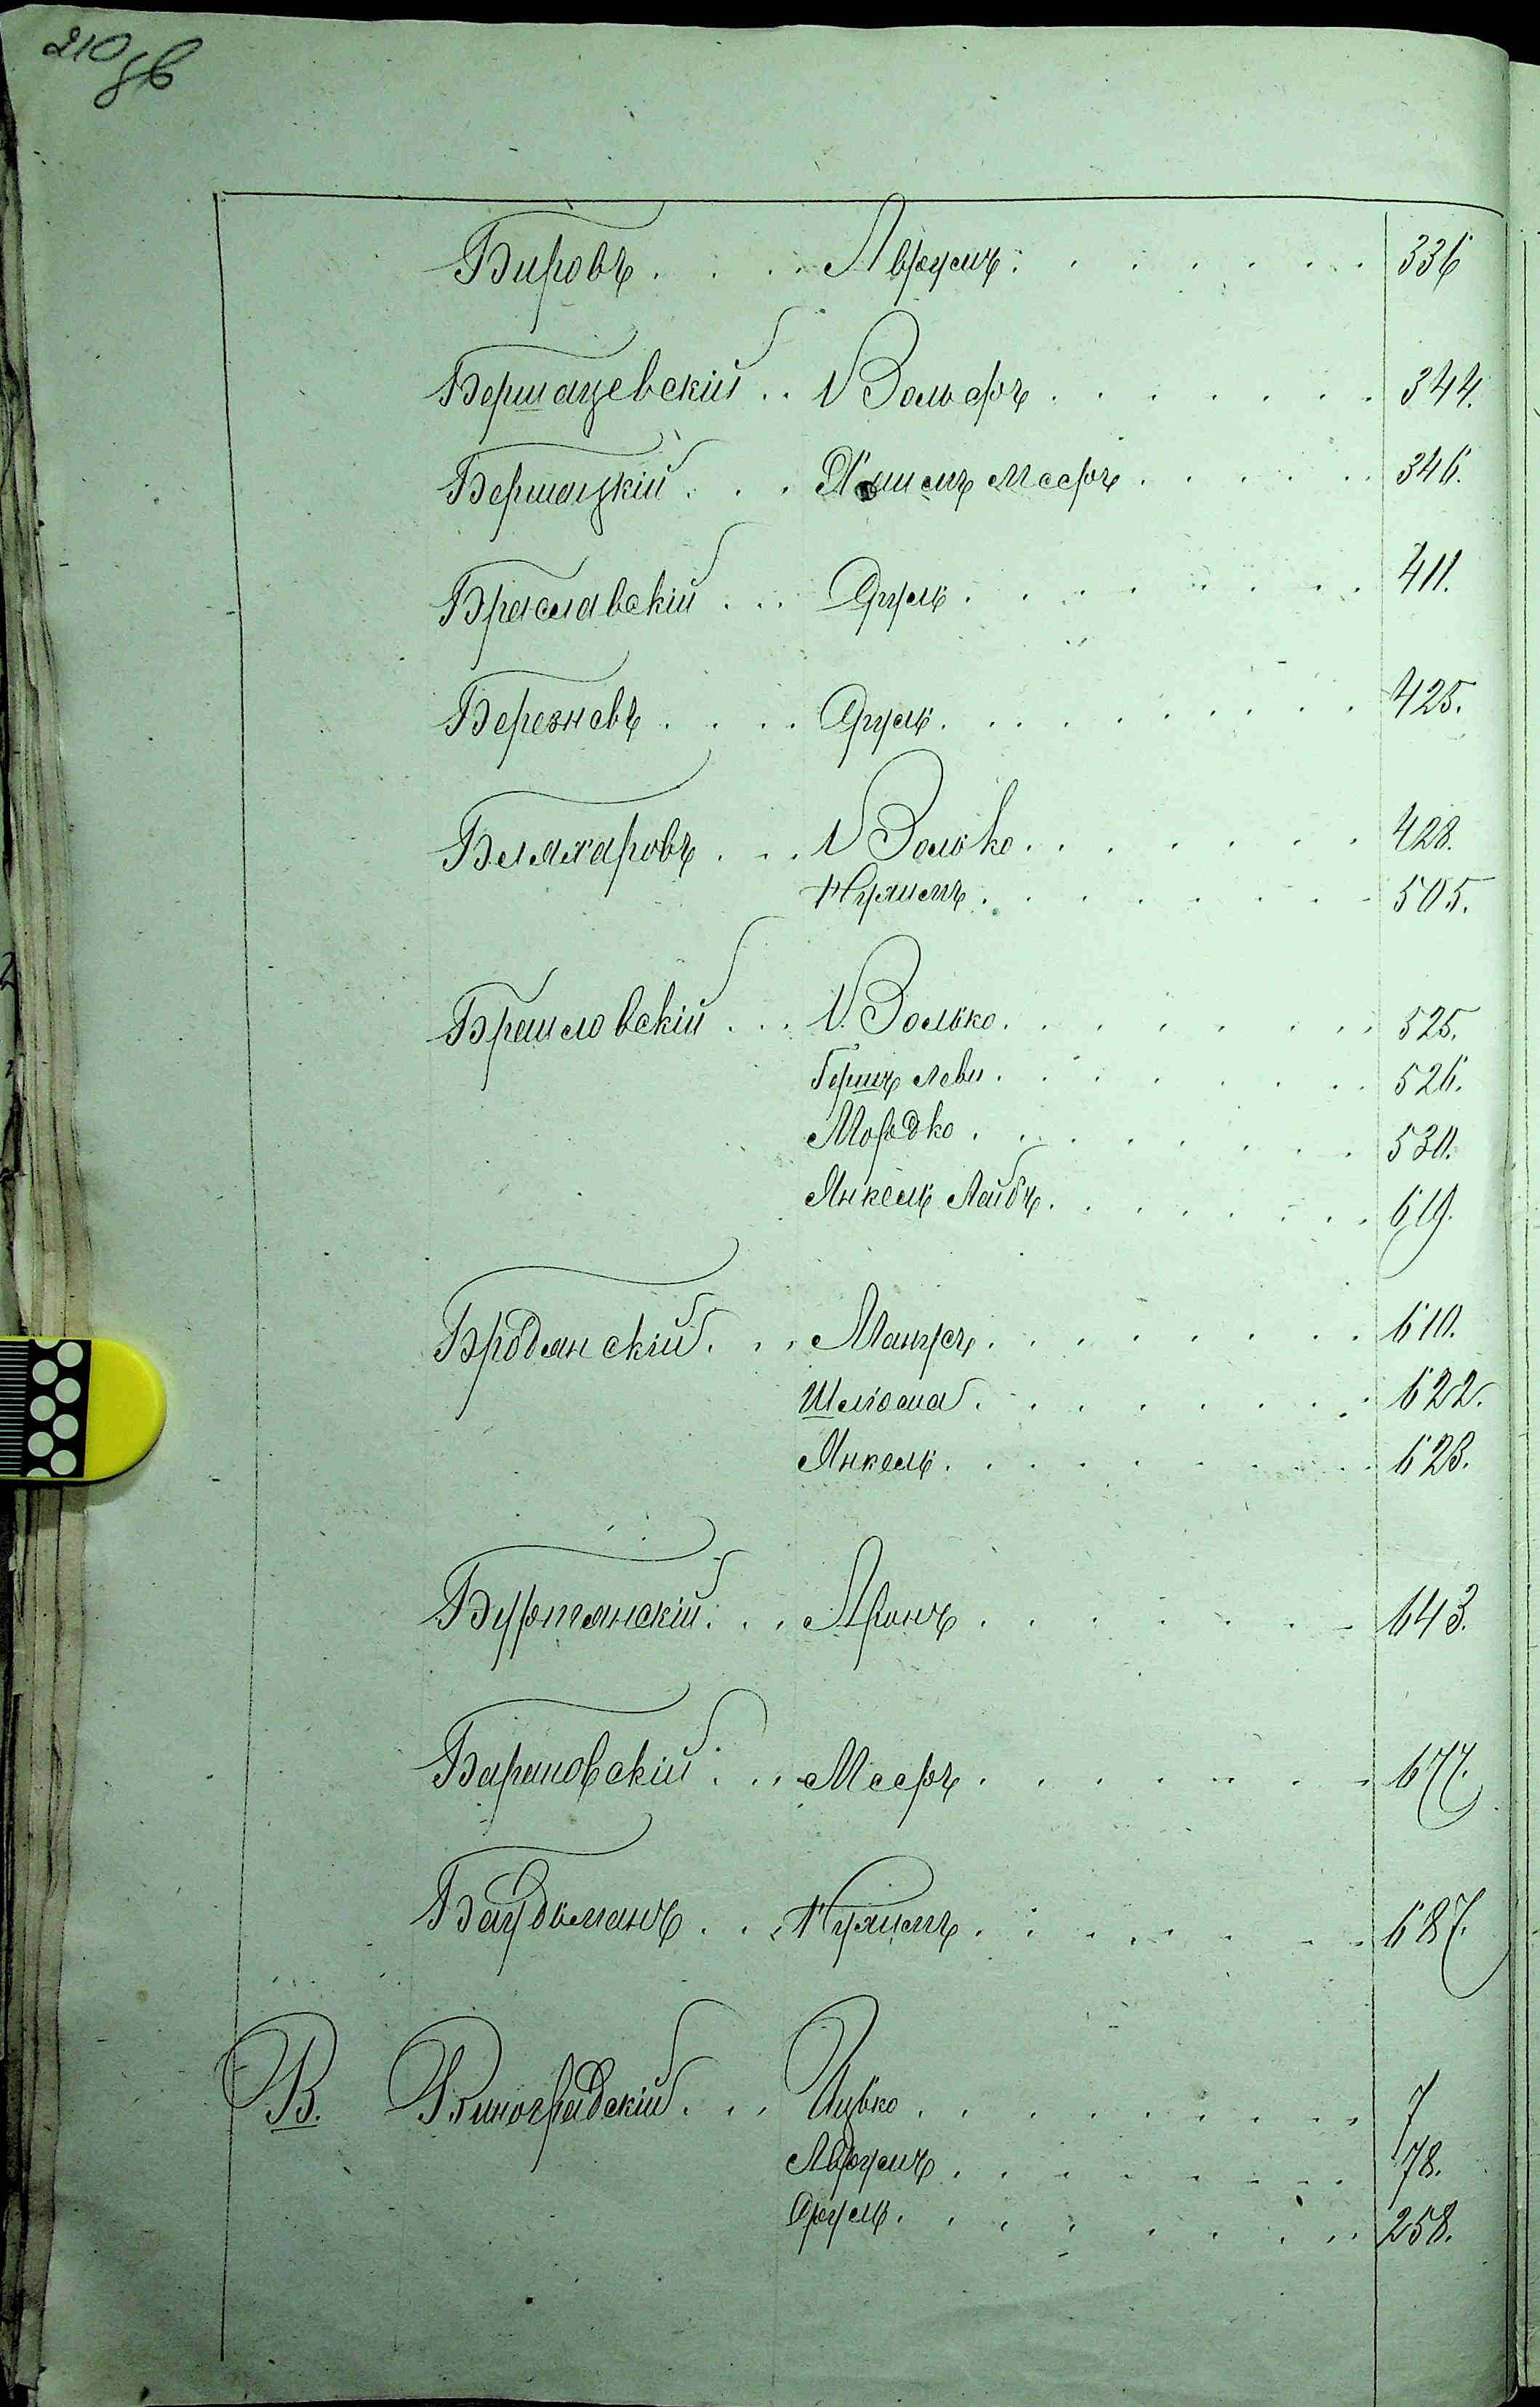 210 об
Бировъ . . . . Аврумъ . . . . . . . 336
Бершацевскій . . Вольфъ . . . . . . . 344.
Бершацкій . . . Хаимъ Мееръ . . . . . 346.
Браславскій . . . Сруль . . . . . . . . 411.
Березневъ . . . . Сруль . . . . . . . . 425.
Белахаровъ . . . Волько . . . . . . . 428.
Нухимъ . . . . . . . . 505.
Браиловскій . . . Волько . . . . . . . 525.
Гершъ Леви . . . . . . . 526.
Мордко . . . . . . . . 530.
Янкель Лейбъ . . . . . . . 619.
Бродянскій . . . Манусъ . . . . . . . 610.
Шлiома . . . . . . . . 622.
Янкель . . . . . . . . 623.
Буртянскій . . . Аронъ . . . . . . . 643.
Барановскій . . . Мееръ . . . . . . . 677.
Нухимъ . . . . . . . 687.
В. Виноградскій . . . Ицько . . . . . . . . 7
Аврумъ . . . . . . . . 78.
Сруль . . . . . . . . 258.